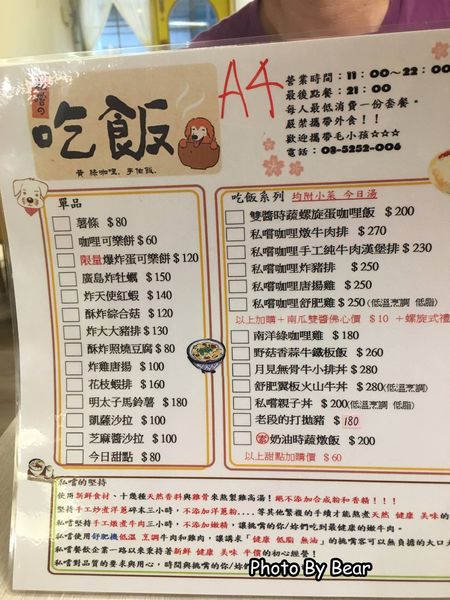 A4
吃飯
營業時間：11：00～22：00
最後點餐：21：00
每人最低消費一份套餐。
嚴禁攜帶外食！！
歡迎攜帶毛小孩☆☆☆
電話：03-5252-006
單品
薯條 $80
咖哩可樂餅 $60
限量爆炸蛋可樂餅 $120
廣島炸牡蠣 $150
炸天使紅蝦 $140
酥炸綜合菇 $120
炸大大豬排 $130
酥炸照燒豆腐 $80
炸雞唐揚 $100
花枝蝦排 $160
明太子馬鈴薯 $180
凱薩沙拉 $100
芝麻醬沙拉 $100
今日甜點 $80
吃飯系列 均附小菜 今日湯
雙醬時蔬螺旋蛋咖哩飯 $200
私嚐咖哩燉牛肉排 $270
私嚐咖哩手工純牛肉漢堡排 $230
私嚐咖哩炸豬排 $250
私嚐咖哩唐揚雞 $250
私嚐咖哩舒肥雞 $250(低溫烹調 低脂)
以上加購＋南瓜雙醬佛心價 $10 ＋螺旋式禮
南洋綠咖哩雞 $180
野菇香蒜牛鐵板飯 $260
月見無骨牛小排丼 $280
舒肥翼板火山牛丼 $280(低溫烹調)
私嚐親子丼 $200(低溫烹調 低脂)
老段的打拋豬 $180
素 奶油時蔬燉飯 $200
以上甜點加購價 $60
私嚐的堅持
使用新鮮食材、十幾種天然香料與雞骨來熬製雞高湯！絕不添加合成粉和香精！！！
堅持手工炒煮洋蔥碎末三小時，不添加洋蔥粉....等其他繁複的手續才能熬煮天然 健康 美味的
私嚐堅持手工燉煮牛肉三小時，不添加嫩精，讓挑嘴的你/妳們吃到最健康的嫩牛肉。
私嚐使用舒肥機低溫 烹調牛肉和雞肉，讓講求「健康 低脂 無油」的挑嘴客可以無負擔的大口
私嚐餐飲企業一路以來秉持著新鮮 健康 美味 平價的初心經營！
私嚐對品質的要求與用心，時間與挑嘴的你/妳
Photo By Bear